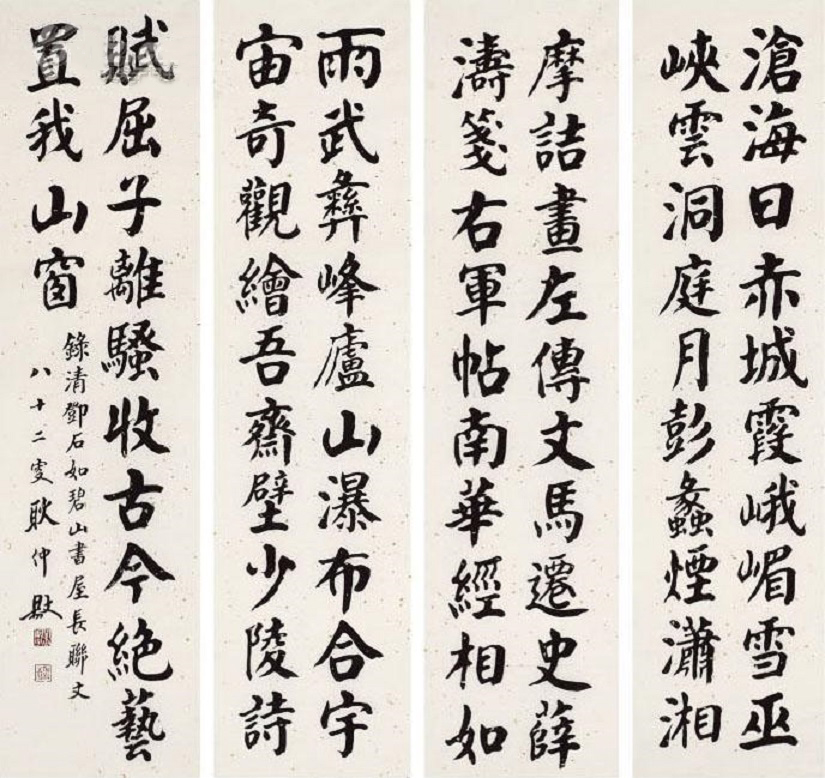 滄海日赤城霞峨嵋雪巫
峽雲洞庭月彭蠡煙瀟湘
摩詰畫左傳文馬遷史薛
濤箋右軍帖南華經相如
雨武彝峰廬山瀑布合宇
宙奇觀繪吾齋壁少陵詩
賦屈子離騷收古今絕藝
置我山窗
錄清鄧石如碧山書屋長聯文
八十二叟耿仲